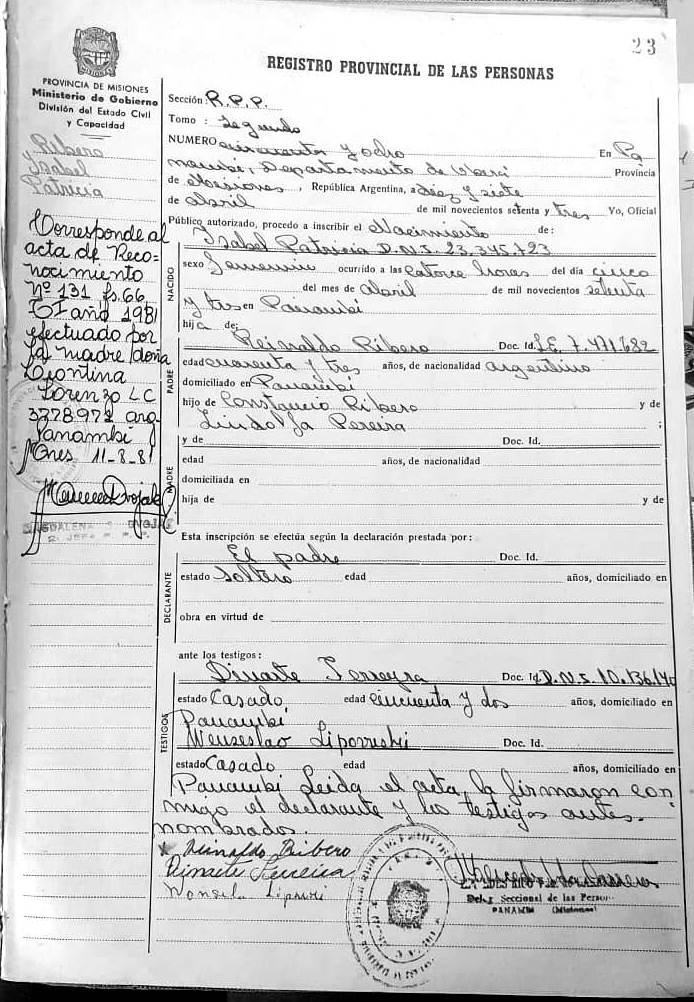 23
REGISTRO PROVINCIAL DE LAS PERSONAS
PROVINCIA DE MISIONES
Ministerio de Gobierno
División del Estado Civil
y Capacidad
Ribero
Ysabel
Patricia
Corresponde al
acta de Reco-
nocimiento
Nº 131 fs. 66
TI año 1981
efectuado por
la madre doña
Leontina
Lorenzo LC
3778972 arg.
Panambí
Mnes 11-8-81
MAGDALENA
Sección: R.P.P.
Tomo : Segundo
NUMERO cincuenta y ocho En Pa
nambí, Departamento de Oberá Provincia
de Misiones, República Argentina, a diez y siete
de Abril de mil novecientos setenta y tres Yo, Oficial
Público autorizado, procedo a inscribir el Nacimiento de:
NACIDO
Ysabel Patricia D.N.I. 23.345.723
sexo Femenino ocurrido a las catorce horas del día cinco
del mes de Abril de mil novecientos setenta
y tres en Panambí
hija de:
PADRE
Reinaldo Ribero Doc. Id. L.E. 7.471.682
edad cuarenta y tres años, de nacionalidad argentino
domiciliado en Panambí
hijo de Constancio Ribero y de
Lindolfa Pereira ;
MADRE
y de Doc. Id.
edad años, de nacionalidad
domiciliada en
hija de y de
Esta inscripción se efectúa según la declaración prestada por :
DECLARANTE
El padre Doc. Id.
estado soltero edad años, domiciliado en
obra en virtud de
ante los testigos :
TESTIGOS
Duarte Ferreyra Doc. Id. D.N.I. 10.136.140
estado Casado edad cincuenta y dos años, domiciliado en
Panambí
Wenseslao Doc. Id.
estado Casado edad años, domiciliado en
Panambí Leida el acta, la firmaron con
migo el declarante y los testigos antes-
nombrados.
Reinaldo Ribero
Duarte Ferreira
Seccional de las Personas
PANAMBI (Misiones)